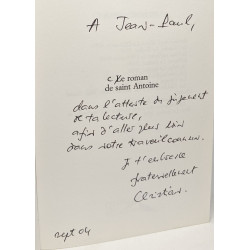 A Jean-Paul,
Le roman
de saint Antoine
dans l'attente du jugement
de ta lecture,
afin d'aller plus loin
dans notre travail commun.
Je t'embrasse
fraternellement
Christian.
sept 04